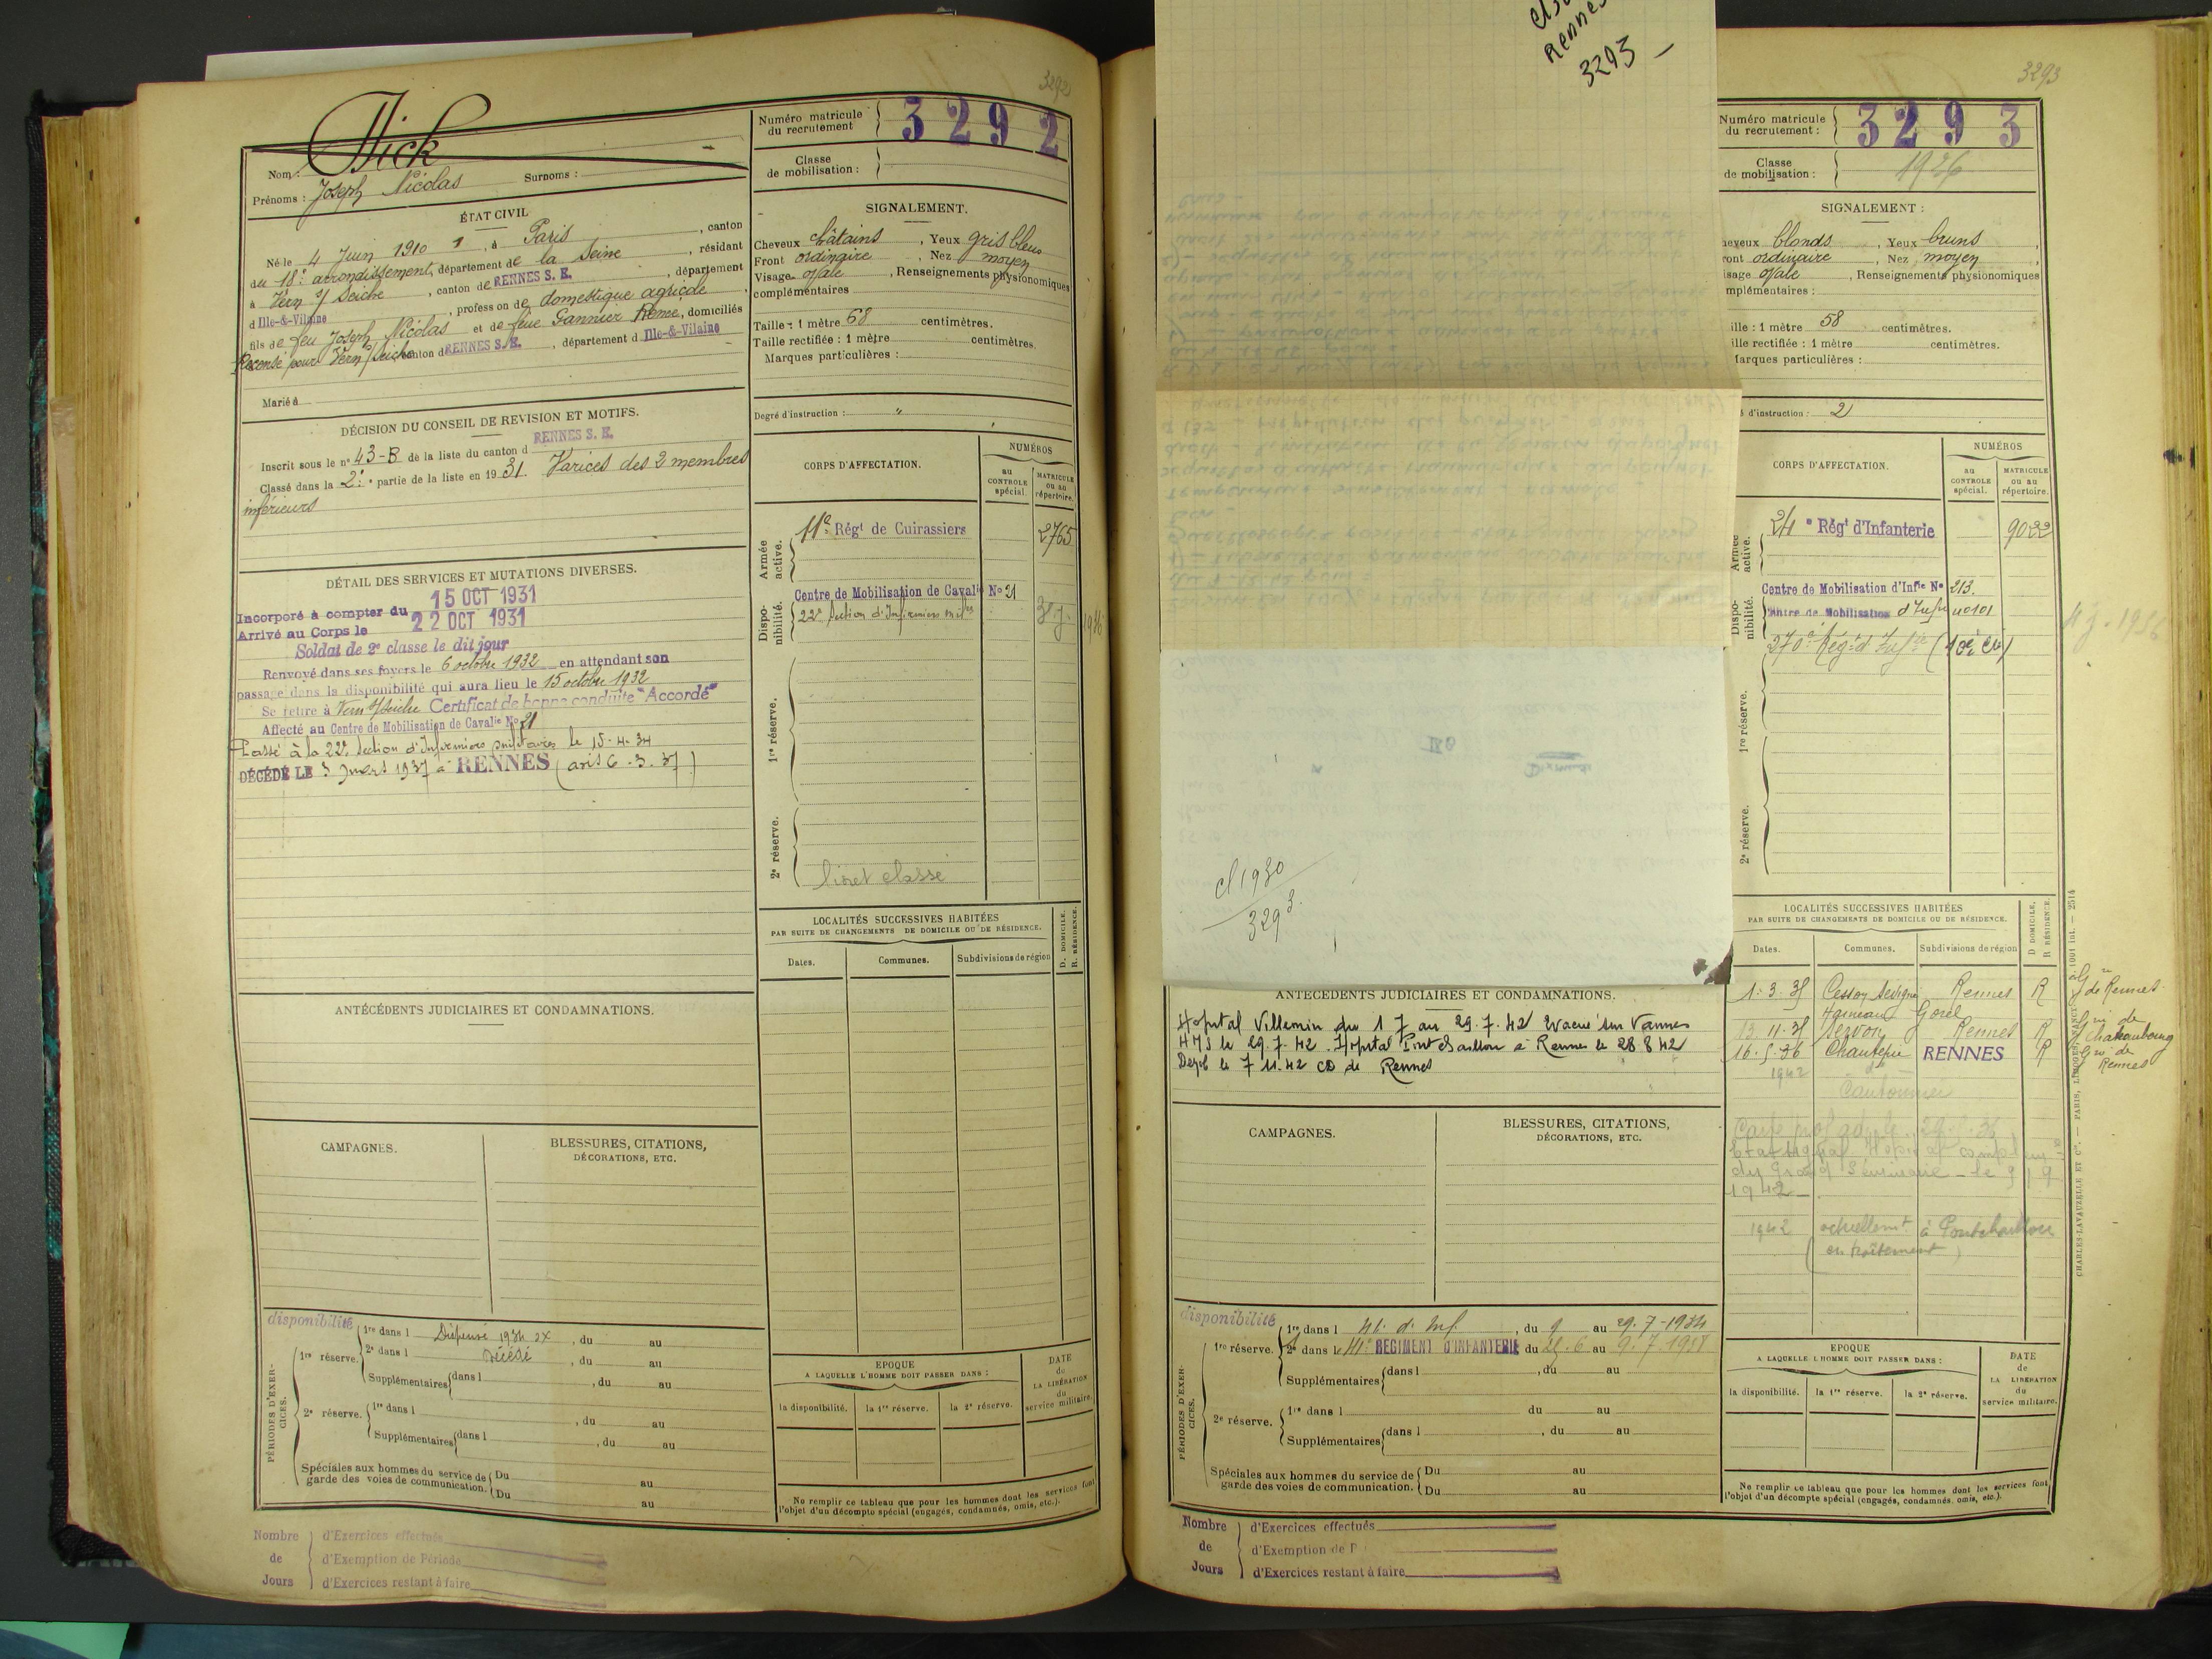 3292
Nom : Jick
Prénoms : Joseph Nicolas Surnoms :
ÉTAT CIVIL
Né le 4 Juin 1910, à Paris, canton
du 18e arrondissement, département de la Seine, résidant
à Vern s/ Seiche, canton de RENNES S. E., département
d Ille-&-Vilaine, profession de domestique agricole,
fils de feu Joseph Nicolas et de feue Gannier Renée, domiciliés
Recensé pour Vern s/ Seiche canton d RENNES S. E., département d Ille-&-Vilaine
Marié à
DÉCISION DU CONSEIL DE REVISION ET MOTIFS.
RENNES S. E.
Inscrit sous le n° 43-B de la liste du canton d
Classé dans la 2e partie de la liste en 1931 Varices des 2 membres
inférieurs
DÉTAIL DES SERVICES ET MUTATIONS DIVERSES.
Incorporé à compter du 15 OCT 1931
Arrivé au Corps le 22 OCT 1931
Soldat de 2e classe le dit jour
Renvoyé dans ses foyers le 6 octobre 1932 en attendant son
passage dans la disponibilité qui aura lieu le 15 octobre 1932
Se retire à Vern s/Seiche Certificat de bonne conduite "Accordé"
Affecté au Centre de Mobilisation de Cavalie No 21
Passé à la 22e Section d'Infirmiers militaires le 15-4-34
DÉCÉDÉ LE 3 mars 1937 à RENNES (avis 6.3.37)
ANTÉCÉDENTS JUDICIAIRES ET CONDAMNATIONS.
CAMPAGNES.
BLESSURES, CITATIONS,
DÉCORATIONS, ETC.
PÉRIODES D'EXERCICES.
disponibilité
1re réserve. 1re dans l Dispensé 1934 , du au
2e dans l Décédé , du au
Supplémentaires dans l , du au
2e réserve. 1re dans l , du au
Supplémentaires dans l , du au
Spéciales aux hommes du service de garde des voies de communication. Du au
Du au
Nombre de Jours
d'Exercices effectués
d'Exemption de Période
d'Exercices restant à faire
Numéro matricule du recrutement 3292
Classe de mobilisation :
SIGNALEMENT.
Cheveux châtains, Yeux gris bleus
Front ordinaire, Nez moyen
Visage ovale, Renseignements physionomiques
complémentaires
Taille : 1 mètre 68 centimètres.
Taille rectifiée : 1 mètre centimètres.
Marques particulières :
Degré d'instruction : "
CORPS D'AFFECTATION.
NUMÉROS
au CONTROLE spécial.
MATRICULE ou au répertoire.
Armée active.
11e Régt de Cuirassiers 2765
Disponibilité.
Centre de Mobilisation de Cavalie No 21
22e Section d'Infirmiers mires
1re réserve.
2e réserve.
livret classé
LOCALITÉS SUCCESSIVES HABITÉES
PAR SUITE DE CHANGEMENTS DE DOMICILE OU DE RÉSIDENCE.
D. DOMICILE. R. RÉSIDENCE.
Dates. Communes. Subdivisions de région
EPOQUE
A LAQUELLE L'HOMME DOIT PASSER DANS :
DATE de LA LIBÉRATION du service militaire.
la disponibilité. la 1re réserve. la 2e réserve.
Ne remplir ce tableau que pour les hommes dont les services font
l'objet d'un décompte spécial (engagés, condamnés, omis, etc.).
Rennes
3293 –
cl 1930
3293.
ANTÉCÉDENTS JUDICIAIRES ET CONDAMNATIONS.
Hopital Villemin du 1 7 au 29.7.42 Evacué sur Vannes
HMS le 29.7.42. Hopital Pontchaillou à Rennes le 28 8 42
Dépôt le 7 11.42 CD de Rennes
CAMPAGNES.
BLESSURES, CITATIONS,
DÉCORATIONS, ETC.
PÉRIODES D'EXERCICES.
disponibilité
1re réserve. 1re dans l 41e d'Inf. , du 9 au 29.7-1934
2e dans le 41e REGIMENT D'INFANTERIE du 21.6 au 9.7.1937
Supplémentaires dans l , du au
2e réserve. 1re dans l du au
Supplémentaires dans l , du au
Spéciales aux hommes du service de garde des voies de communication. Du au
Du au
Nombre de Jours
d'Exercices effectués
d'Exemption de P
d'Exercices restant à faire
3293
Numéro matricule du recrutement : 3293
Classe de mobilisation : 1926
SIGNALEMENT :
heveux blonds, Yeux bruns
ront ordinaire, Nez moyen
isage ovale, Renseignements physionomiques
mplémentaires :
ille : 1 mètre 58 centimètres.
ille rectifiée : 1 mètre centimètres.
Marques particulières :
é d'instruction : 2
CORPS D'AFFECTATION.
NUMÉROS
au CONTROLE spécial.
MATRICULE ou au répertoire.
Armée active.
24e Régt d'Infanterie 9022
Disponibilité.
Centre de Mobilisation d'Infie No 213.
Centre de Mobilisation d'Infie no 101
270e Régt d'Infie (10e Cie)
1re réserve.
2e réserve.
LOCALITÉS SUCCESSIVES HABITÉES
PAR SUITE DE CHANGEMENTS DE DOMICILE OU DE RÉSIDENCE.
D DOMICILE, R RÉSIDENCE.
Dates. Communes. Subdivisions de région
1.3.35 Cesson Sévigné Rennes R Gie de Rennes
Hameau Gorel
13.11.35 Servon Rennes R Gie de Chateaubourg
16.5.36 Chantepie RENNES R Gie de Rennes
1942 Cantonnier
du Grand Séminaire – le 9 / 9
1942 –
1942 actuellemt à Pontchaillou
(en traitement)
EPOQUE
A LAQUELLE L'HOMME DOIT PASSER DANS :
DATE de LA LIBERATION du service militaire.
la disponibilité. la 1re réserve. la 2e réserve.
Ne remplir ce tableau que pour les hommes dont les services font
l'objet d'un décompte spécial (engagés, condamnés, omis, etc.).
CHARLES-LAVAUZELLE ET Cie. — PARIS, LIMOGES, NANCY